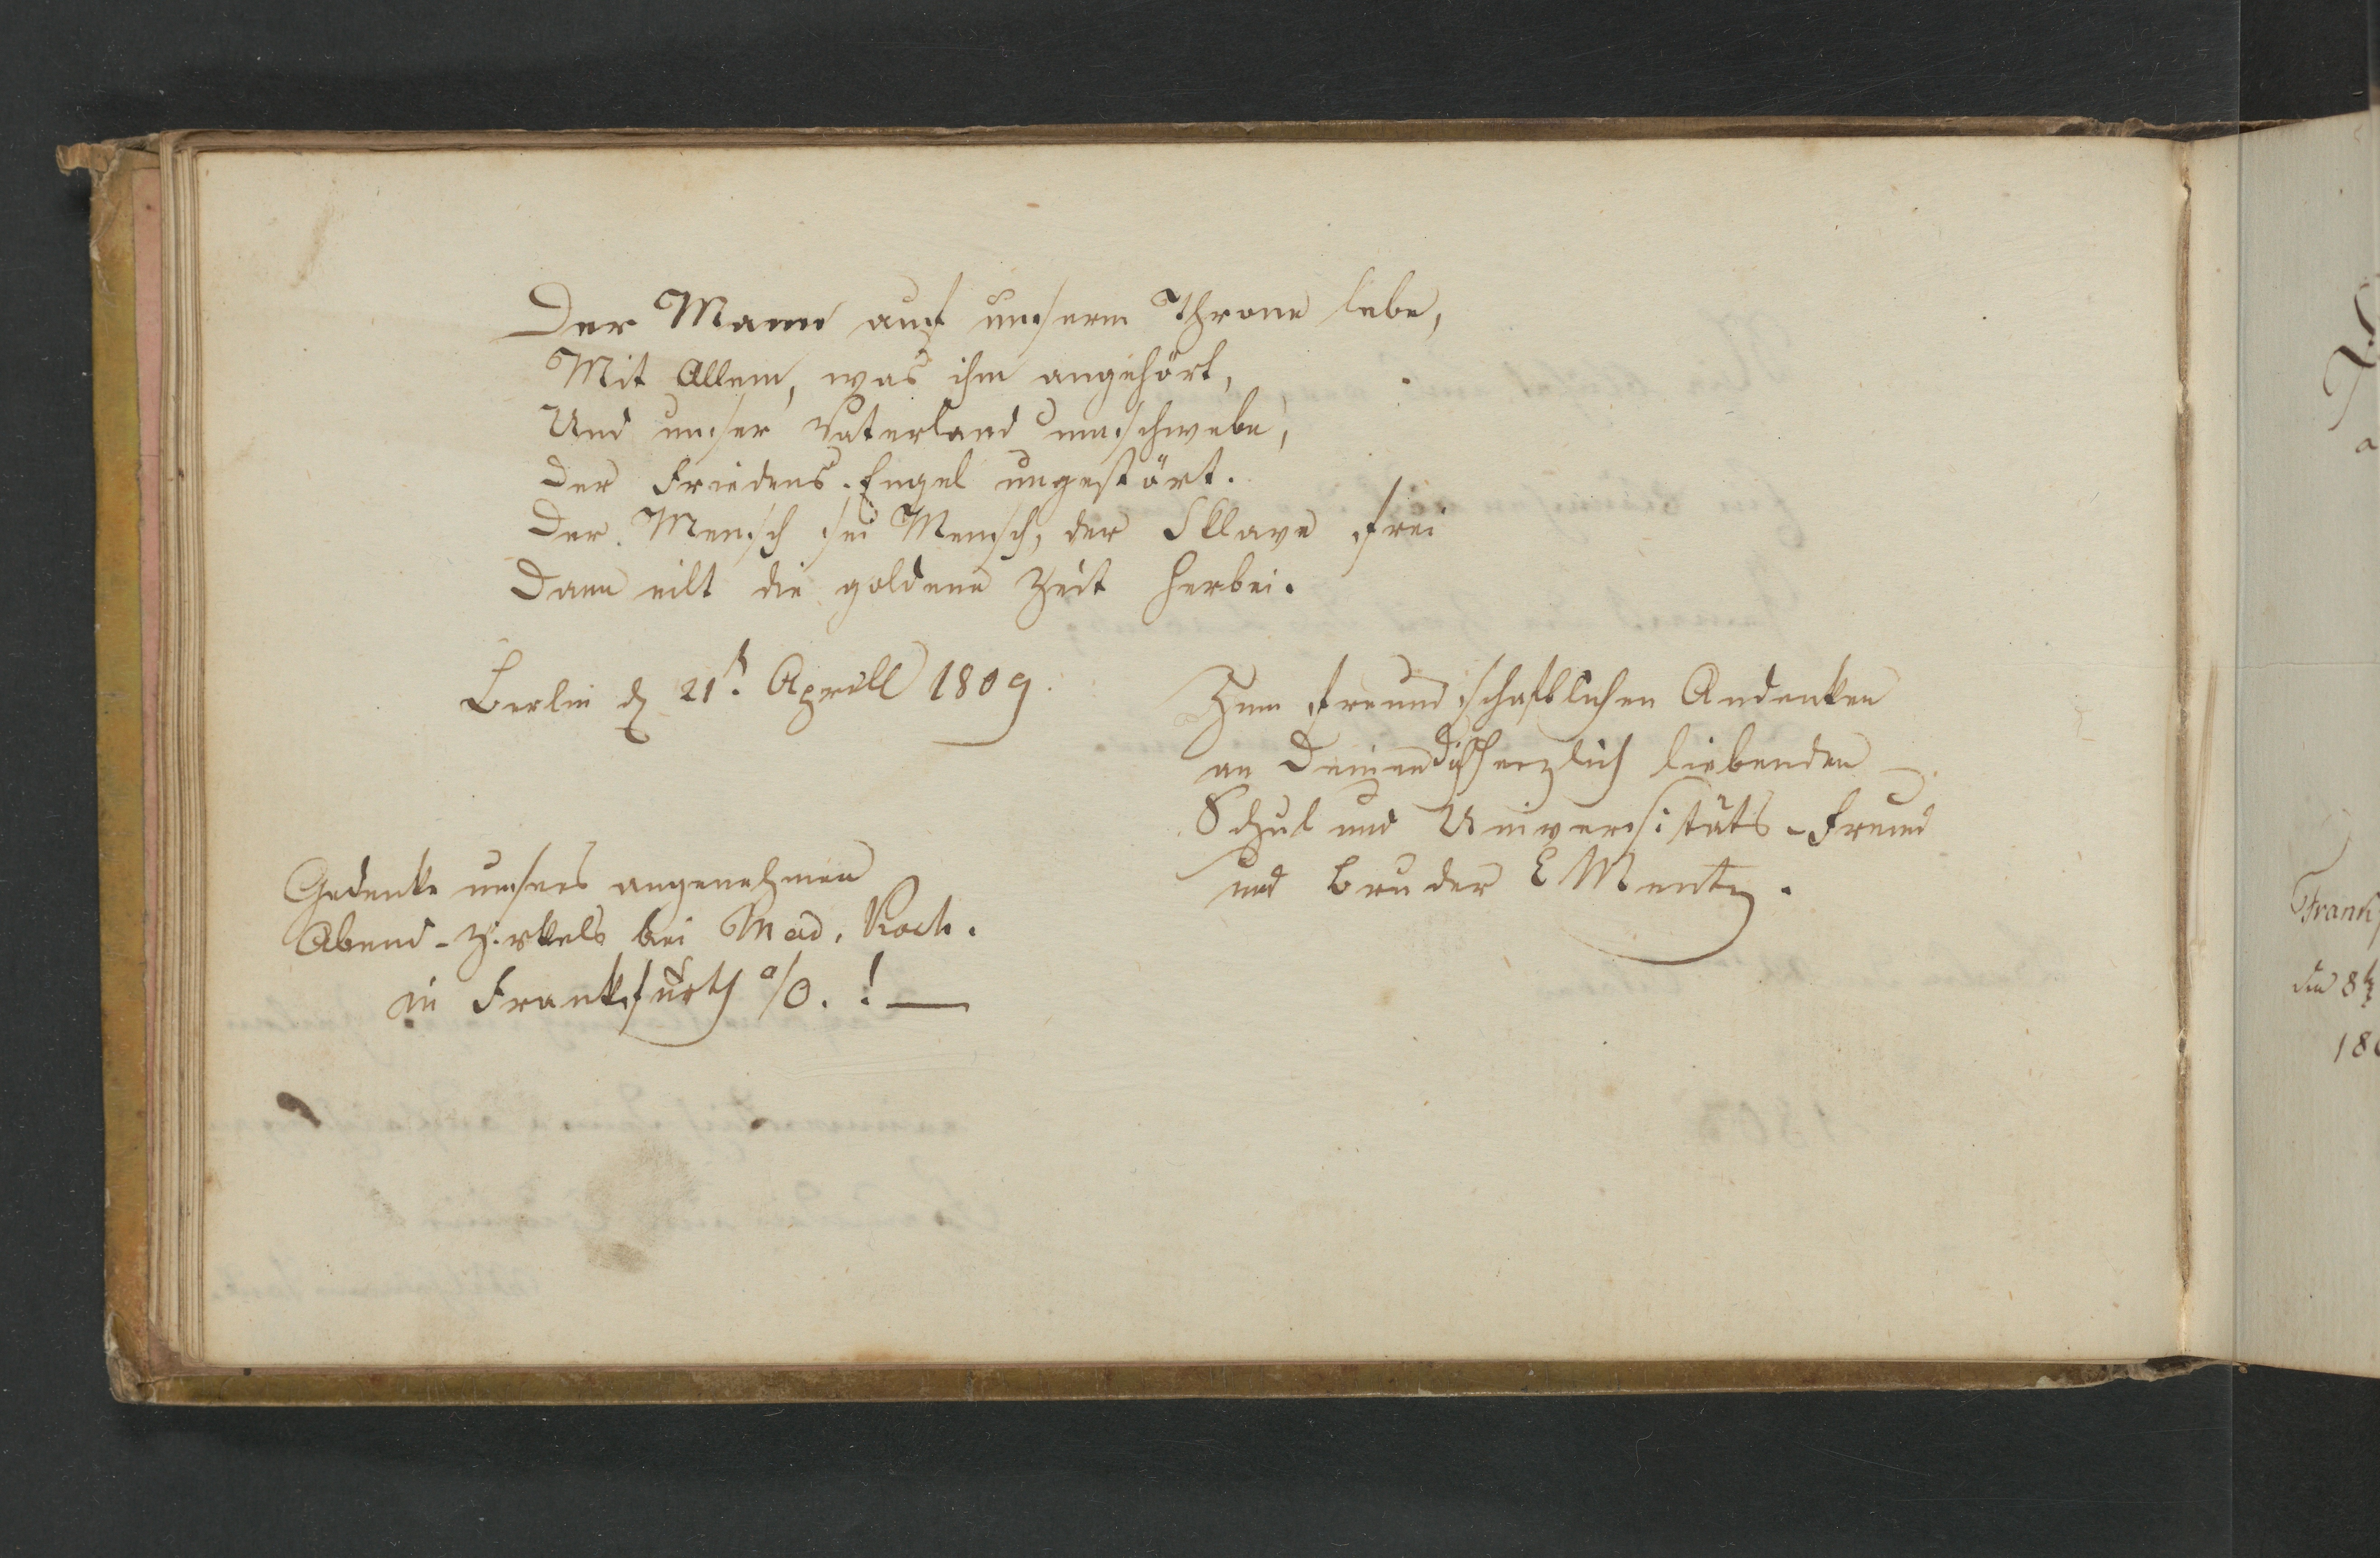 Der Mann auf unserm Throne lebe,
Mit Allem, was ihm angehört,
Und unser Vaterland umschwebe,
Der Friedens-Engel ungestört.
Der Mensch sei Mensch, der Sklave frei
Dann eilt die goldene Zeit herbei.
Berlin d 21t. Aprill 1809.
Zum freundschaftlichen Andenken
an Deinen Dich herzlich liebenden
Schul und Universitäts-Freund
und Bruder E Mentz.
Gedenke unsres angenehmen
Abend-Zirkels bei Mad. Koch.
in Frankfurth a/O. ! —
Frankf
den 8t
180